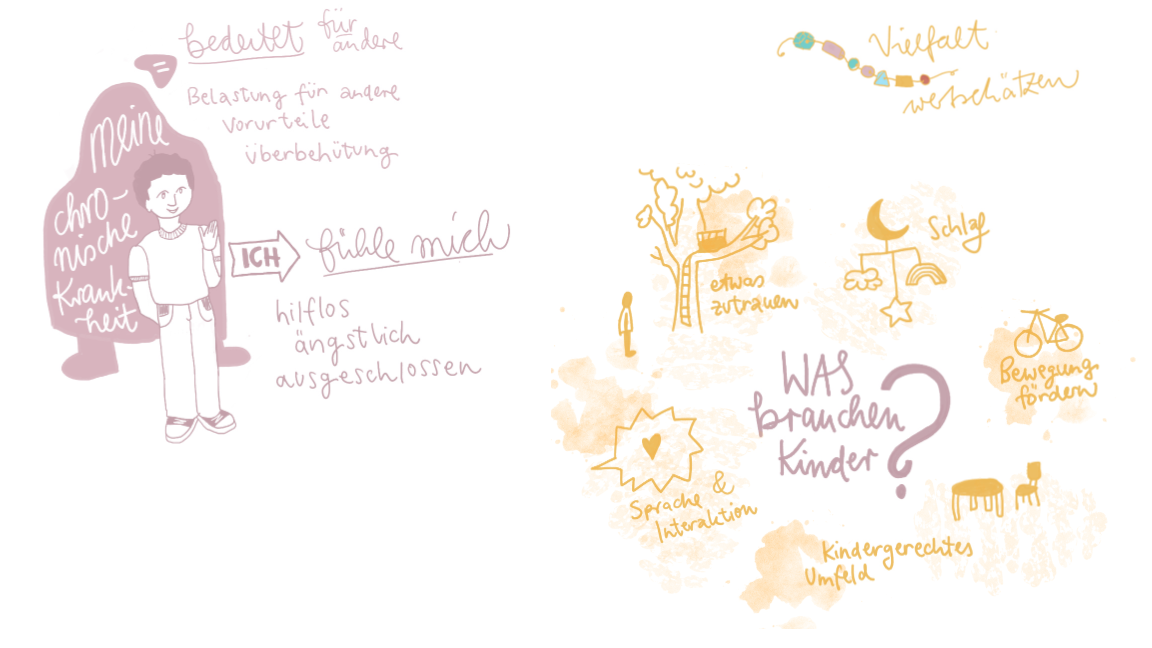 bedeutet für
andere
Belastung für andere
Vorurteile
überbehütung
meine
chro-
nische
Krank-
heit
ICH
fühle mich
hilflos
ängstlich
ausgeschlossen
Vielfalt
wertschätzen
etwas
zutrauen
Schlaf
Bewegung
fördern
WAS
brauchen
Kinder?
Sprache &
Interaktion
Kindergerechtes
Umfeld